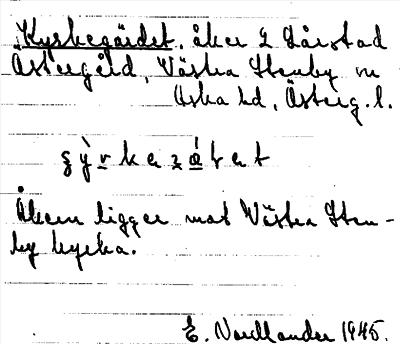 Kyrkegärdet, åker å Hårstad
Östergård, Västra Stenby sn
Aska hd, Österg. l.
Åkern ligger mot Västra Sten-
by kyrka.
E. Nordlander 1945.